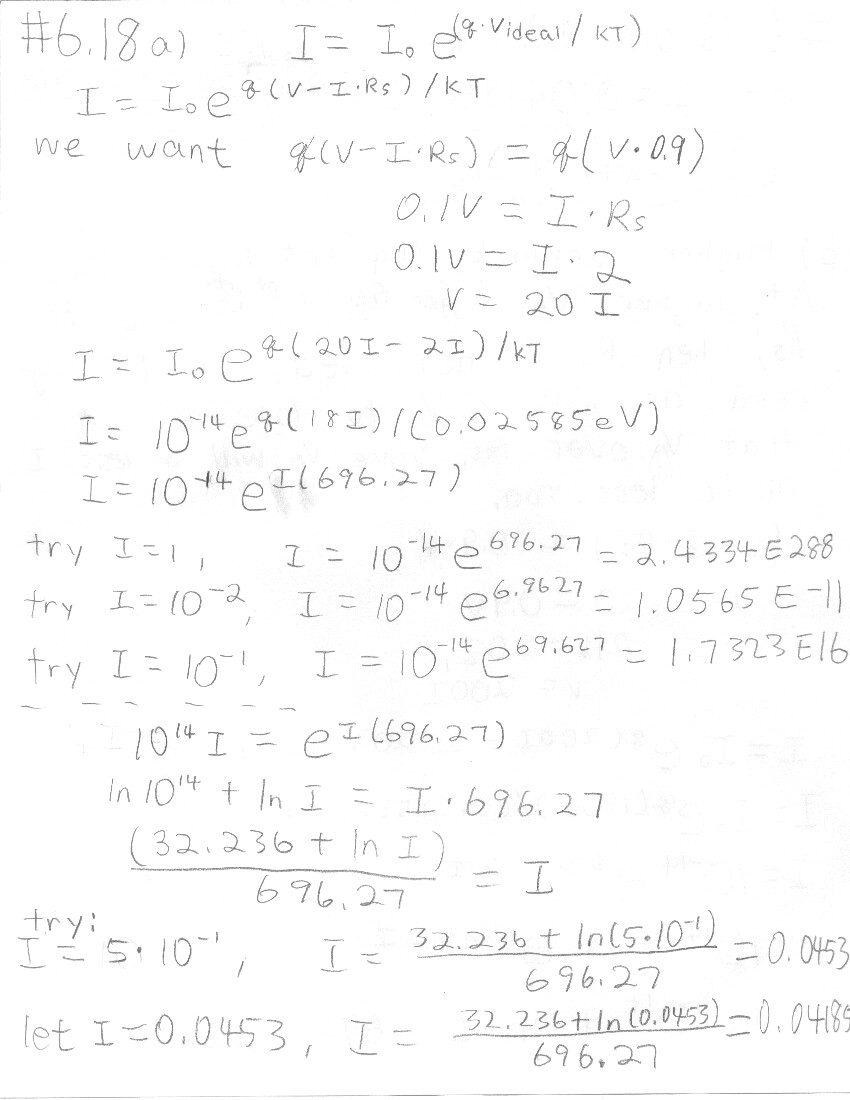 #6.18 a) I = I₀ e^(q·Videal / kT)
I = I₀ e^q(V-I·Rs)/kT
we want q(V-I·Rs) = q(V·0.9)
0.1V = I·Rs
0.1V = I·2
V = 20 I
I = I₀ e^q(20I-2I)/kT
I = 10^-14 e^q(18I)/(0.02585eV)
I = 10^-14 e^I(696.27)
try I=1, I = 10^-14 e^696.27 = 2.4334E288
try I=10^-2, I = 10^-14 e^6.9627 = 1.0565E-11
try I=10^-1, I = 10^-14 e^69.627 = 1.7323E16
10^14 I = e^I(696.27)
ln 10^14 + ln I = I·696.27
(32.236 + ln I)
696.27 = I
try:
I = 5·10^-1, I = 32.236 + ln(5·10^-1) / 696.27 = 0.0453
let I=0.0453, I = 32.236+ln(0.0453) / 696.27 = 0.04185